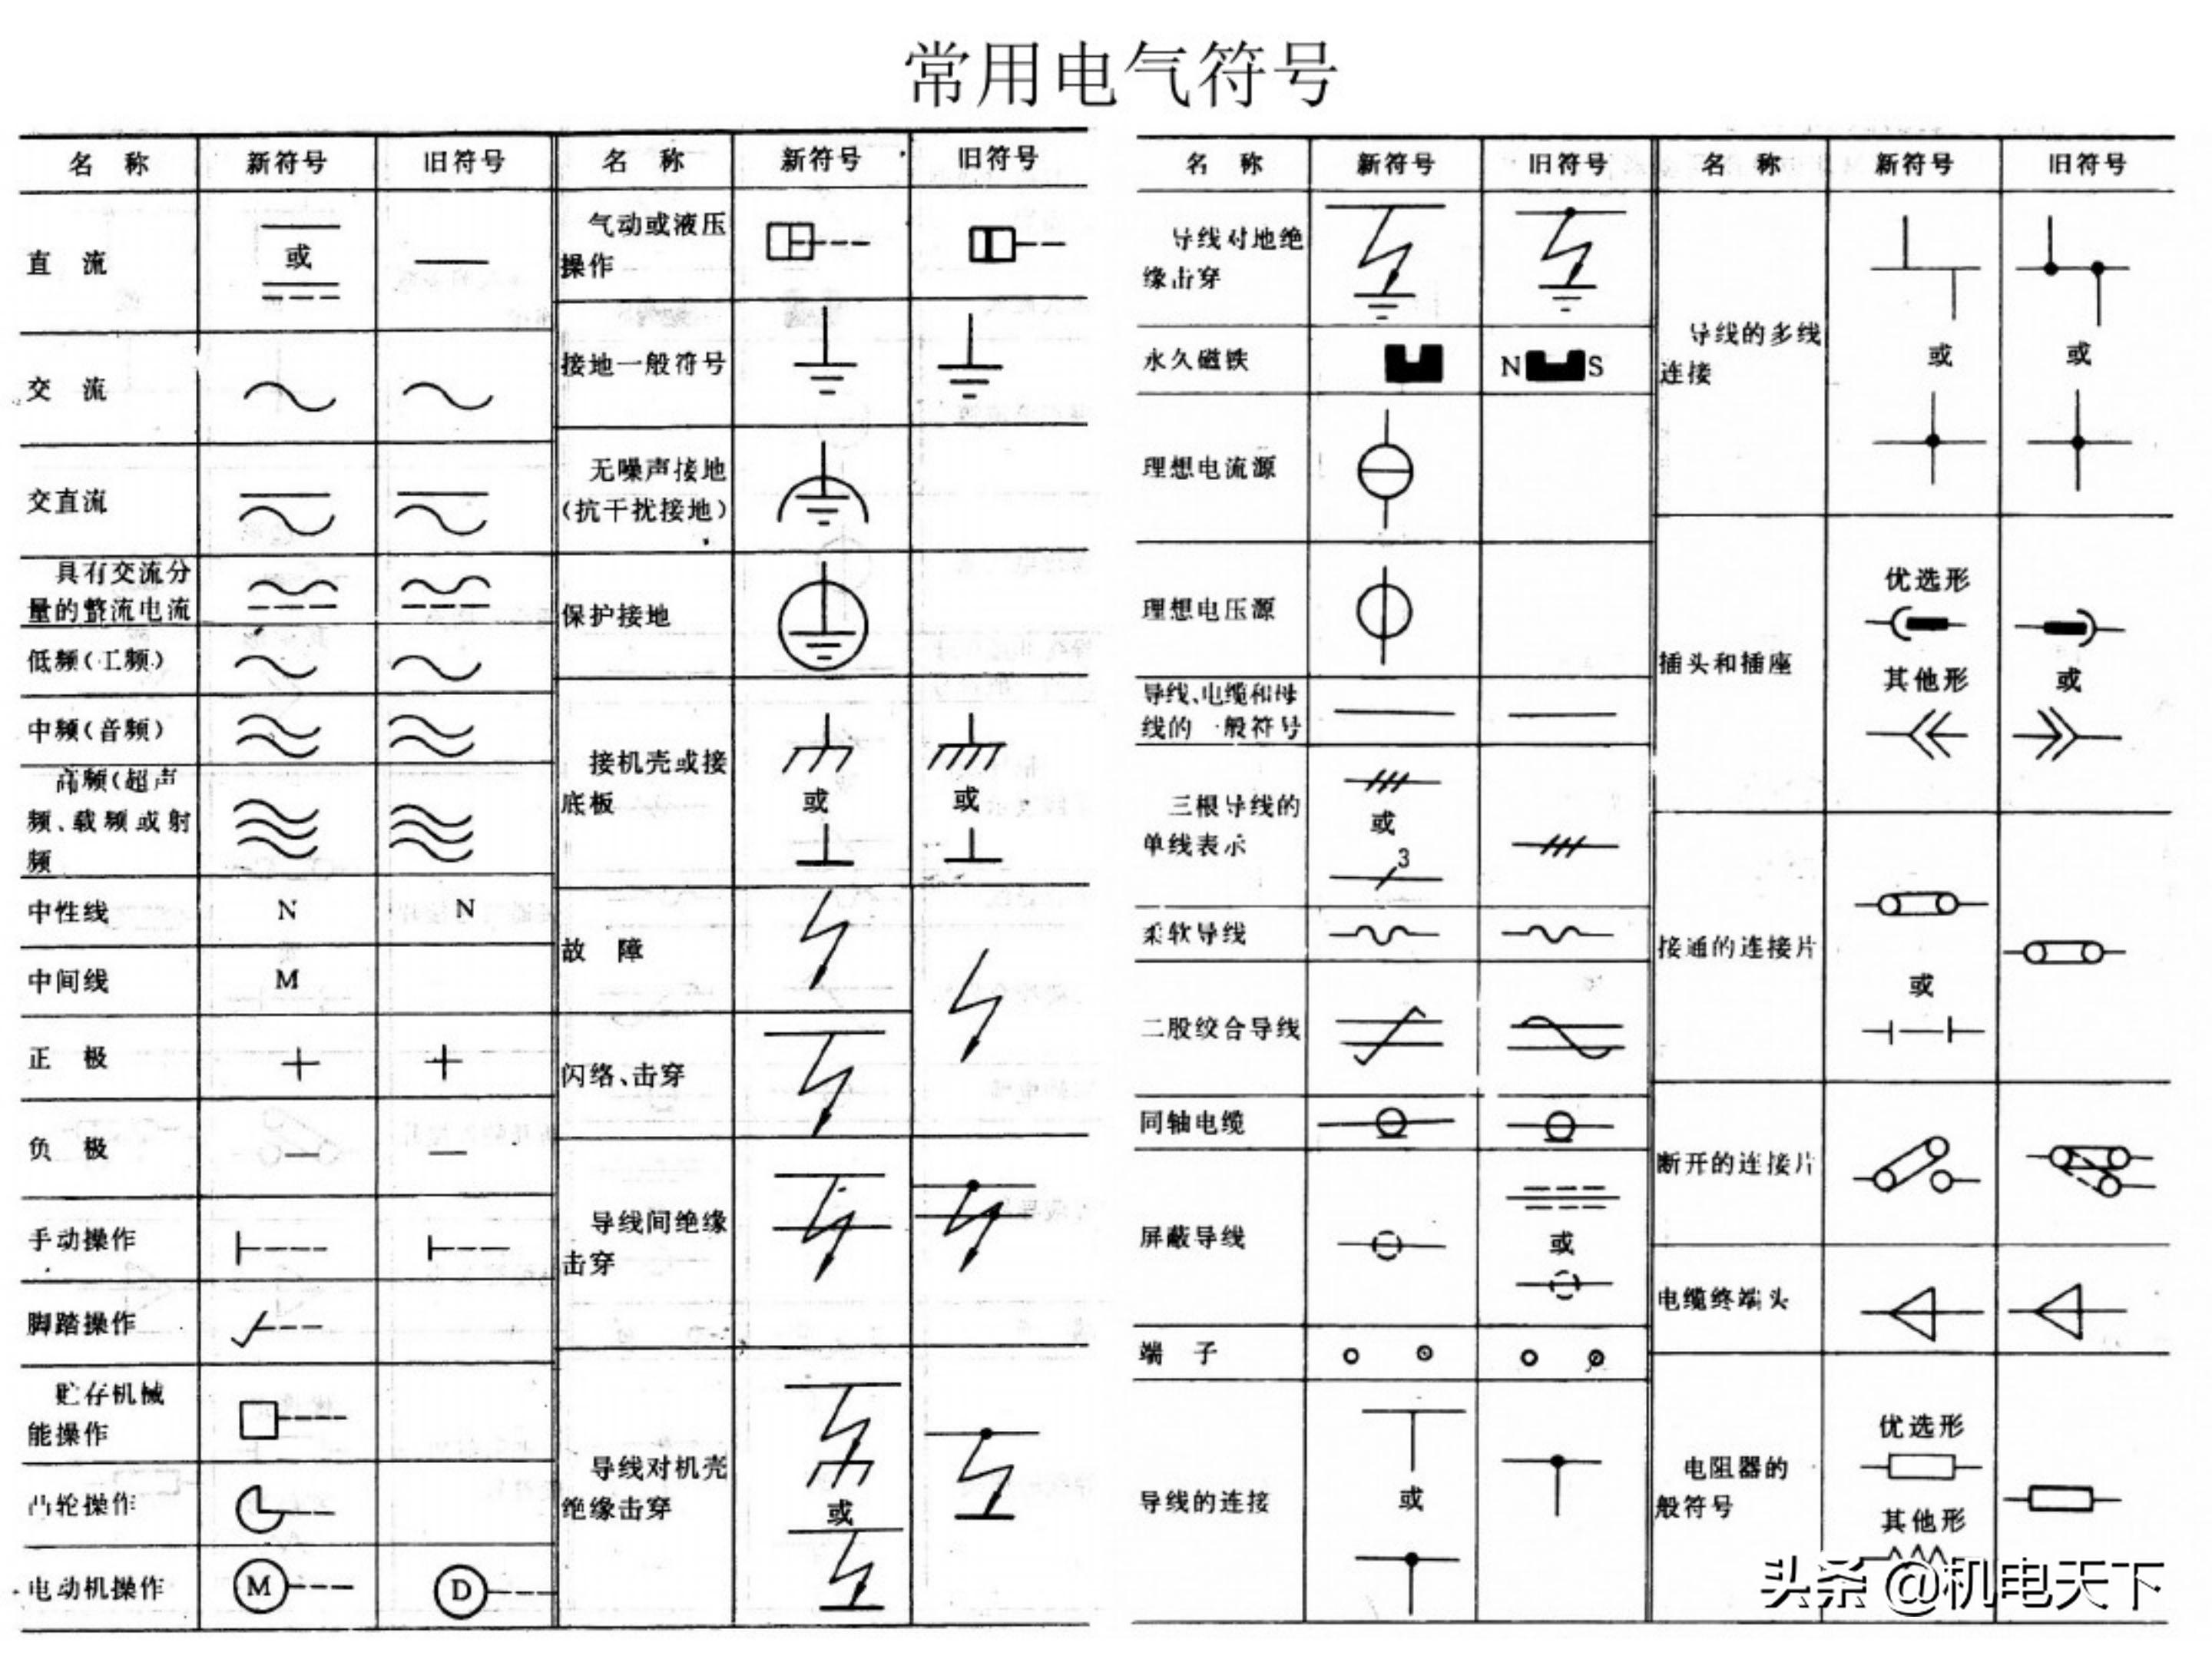 常用电气符号
名 称 新符号 旧符号 名 称 新符号 旧符号 名 称 新符号 旧符号 名 称 新符号 旧符号
直 流
或
交 流
交直流
具有交流分
量的整流电流
低频(工频)
中频(音频)
高频(超声
频、载频或射
频
中性线 N N
中间线 M
正 极
负 极
手动操作
脚踏操作
贮存机械
能操作
凸轮操作
电动机操作 M D
气动或液压
操作
接地一般符号
无噪声接地
(抗干扰接地)
保护接地
接机壳或接
底板
或 或
故 障
闪络、击穿
导线间绝缘
击穿
导线对机壳
绝缘击穿
或
导线对地绝
缘击穿
永久磁铁 N S
理想电流源
理想电压源
导线、电缆和母
线的一般符号
三根导线的
单线表示
或
3
柔软导线
二股绞合导线
同轴电缆
屏蔽导线
或
端 子
导线的连接
或
导线的多线
连接
或 或
插头和插座
优选形
其他形 或
接通的连接片
或
断开的连接片
电缆终端头
电阻器的
般符号
优选形
其他形
头条 @机电天下